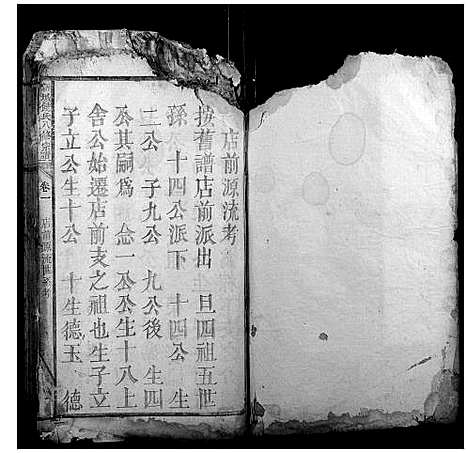 店前源流考
按舊譜店前派出 旦四祖五世
孫 十四公派下 十四公 生
二公 子九公 九公後 生四
公其嗣爲 念一公公生十八上
舍公始遷店前支之祖也生子立
子立公生十公 十生德玉 德
氏八修宗譜 卷一 店前源流考